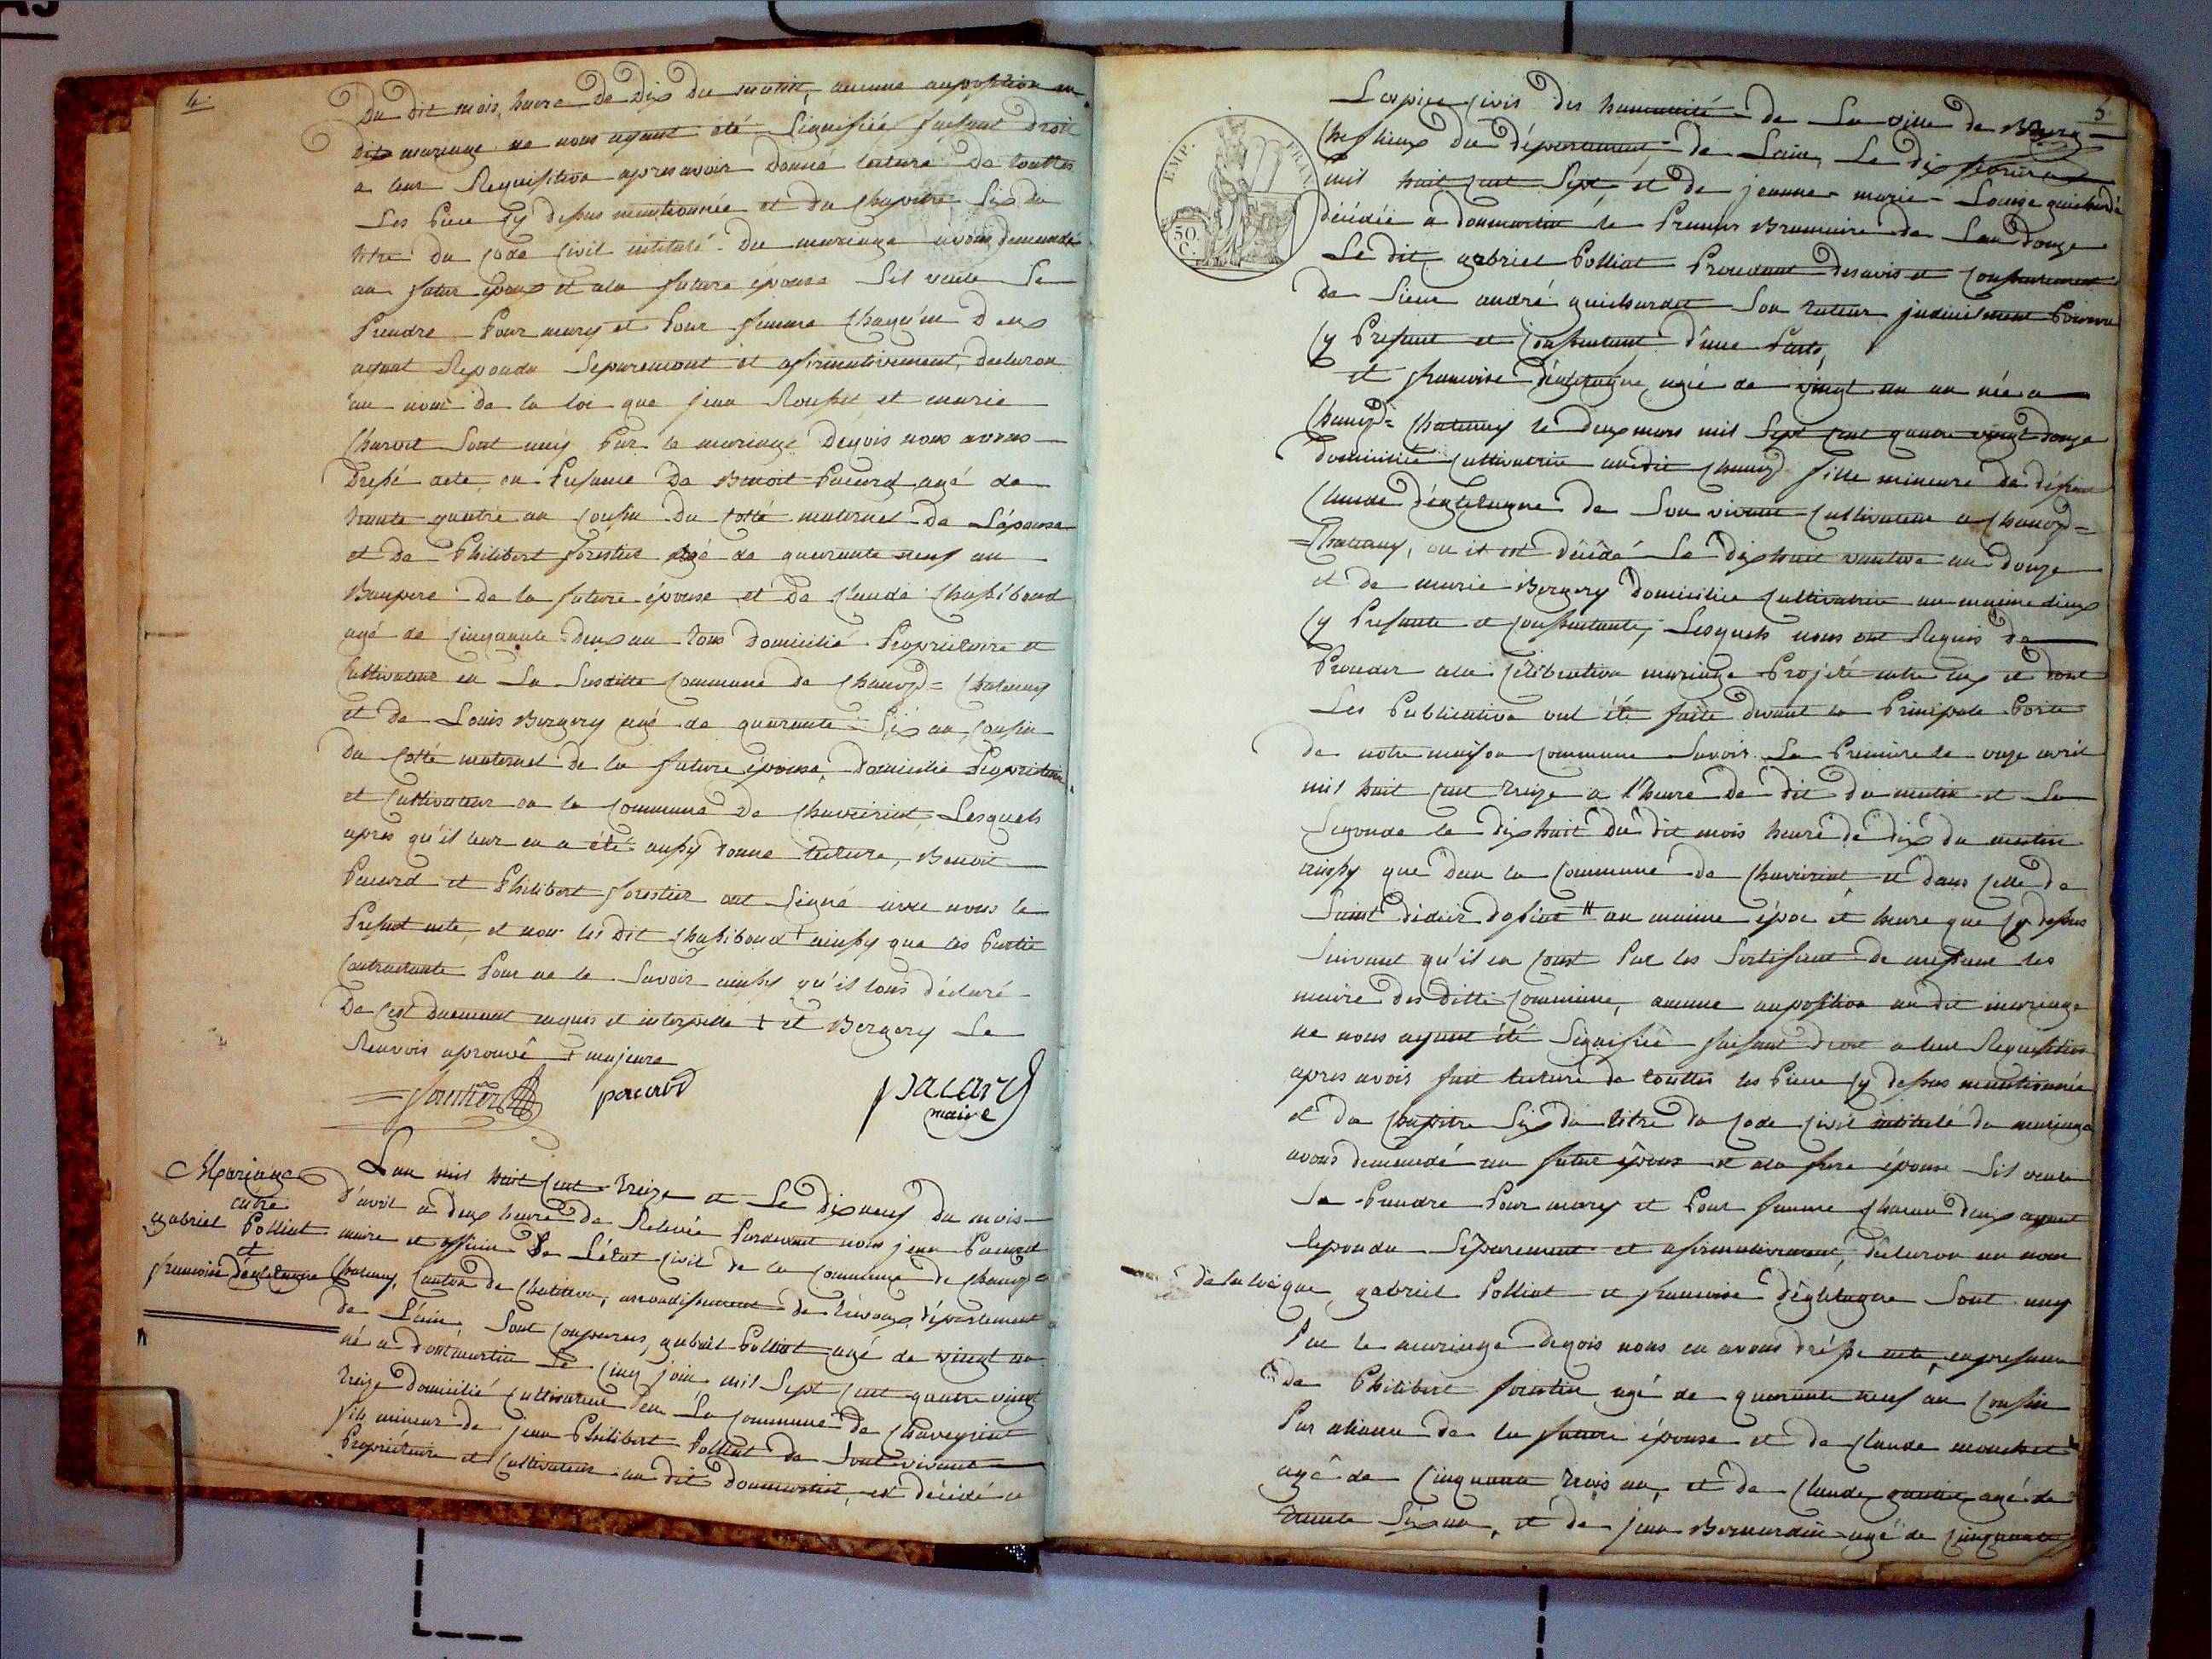 4.
Du dit mois, heure De Dix Du matin, aucune auposition au
Dit mariage ne nous ayant été Signifiée faisant Droit
a leur Requisition apres avoir Donné lecture De touttes
Les Piece Cy dessus mentionnée et du Chapitre Six du
titre Du Code Civil intitulé Du mariage avons demandé
au futur epoux et ala future épouse Sil veule Se
Prendre Pour mary et Pour femme Chaqu'un Deux
ayant Repondu Separement et afirmativement, Declaron
au nom de la loi que jean Rousset et marie
Charvet Sont unis Par le mariage Dequois nous avons
Dressé acte, en Presance De Benoit Pacard agé de
trente quatre an Cousin Du Cotté maternel De L'épouse
et De Philibert forestier agé de quarante neuf an
Baupere De la future épouse et De Claude Chassiboud
agé de Cinquante Deux an tous Domicilié Proprietaire et
Cultivateur en La Susditte Commune De Chanoz=Chatenay
et De Louis Bergery agé de quarante Six an Cousin
Du Cotté maternel De la future épouse, Domicilié Proprietaire
et Cultivateur en la Commune De Chaveiriat Lesquels
apres qu'il leur en a été aussy Donné lecture, Benoit
Pacard et Philibert forestier ont Signé avec nous le
Present acte, et non les Dit Chassiboud + ainsy que les Partie
Contractante Pour ne le Savoir ainsy qu'il lons déclaré
De Cest Duement enquis et interpellé ‡ et Bergery Le
Renvois aprouvé + majeure
forestier pacard pacard
maire
Mariage
entre
gabriel Polliat
et
francoise Dégletagne
Lan mil huit Cent treize et Le Dix neuf Du mois
D'avril a deux heure De Relevée Pardevant nous jean Pacard
maire et officier De L'état Civil de la Commune de Chanoz=
Chatenay, Canton de Chatillon, arrondissement de trévoux, département
De L'ain, Sont Comparus, gabriel Polliat agé de vingt an
né a Donmartin Le Cinq juin mil Sept Cent quatre vingt
treize Domicilié Cultivateur en La Commune De Chaveyriat
fils mineur de jean Philibert Polliat De Son vivant
Proprietaire et Cultivateur au dit Donmartin, et décédé a
5.
EMP. FRAN.
50
C.
Lospice Civis Des humanité De La ville De Bourg
Cheflieux Du Département De Lain, Le Dix février
mil huit Cent Sept et De jeanne-marie-Louise guichardet
décédée a donmartin le Premier Brumaire De Lan Douze
Le dit gabriel Polliat Procedant Desavis et Consentement
De Sieur andré guichardet Son tuteur judiciement Pourvu
Cy Present et Consentant D'une Parts,
et francoise Dégletagne agée de vingt un an née a
Chanoz=Chatenay le Deux mars mil Sept Cent quatre vingt Douze
Domiciliée Cultivatrice audit Chanoz fille mineure De défunt
Claude Déglétagne De Son vivant Cultivateur a Chanoz=
=Chatenay, ou il est Décédé Le Dixhuit vantose an Douze
et De marie Bergery Domiciliée Cultivatrice au maime Lieux
Cy Presante et Consentante, Lesquels nous ont Requis De
Proceder ala Célébration mariage Projeté entre eux et Dont
Les Publication ont été faite devant la Principale Porte
de notre maison Commune Savoir La Premiere le onze avril
mil huit Cent treize a l'heure De Dit du matin et La
Segonde le Dixhuit Du dit mois heure De Dix du matin
ainsy que Dans la Commune De Chaveiriat et Dans Celle de
Saint Didier Dofiat # au maime époc et heure que Cy dessus
Suivant qu'il en Const Par les Sertificat De messieur les
maire Des Ditte Commune, aucune auposition au dit mariage
ne nous ayant été Signifiée faisant Droit a leur Requisition
apres avoir fait lecture de touttes les Piece Cy dessus mentionnée
et Du Chapitre Six Du titre Du Code Civil intitulé Du mariage
avons demandé au futur époux et ala future épouse Sil veule
Se Prendre Pour mary et Pour femme Chacun Deux ayant
Repondu Séparement et afirmativement, déclaron au nom
De la loi que gabriel Polliat et francoise Déglétagne Sont unis
Par le mariage Dequois nous en avons Dréssé acte, enpresance
De Philibert forestier agé de quarante neuf an Cousin
Par aliance De la future épouse et De Claude mouchet
agé de Cinquante trois an, et De Claude agé de
trente Six an, et De jean Bernardin agé de Cinquante